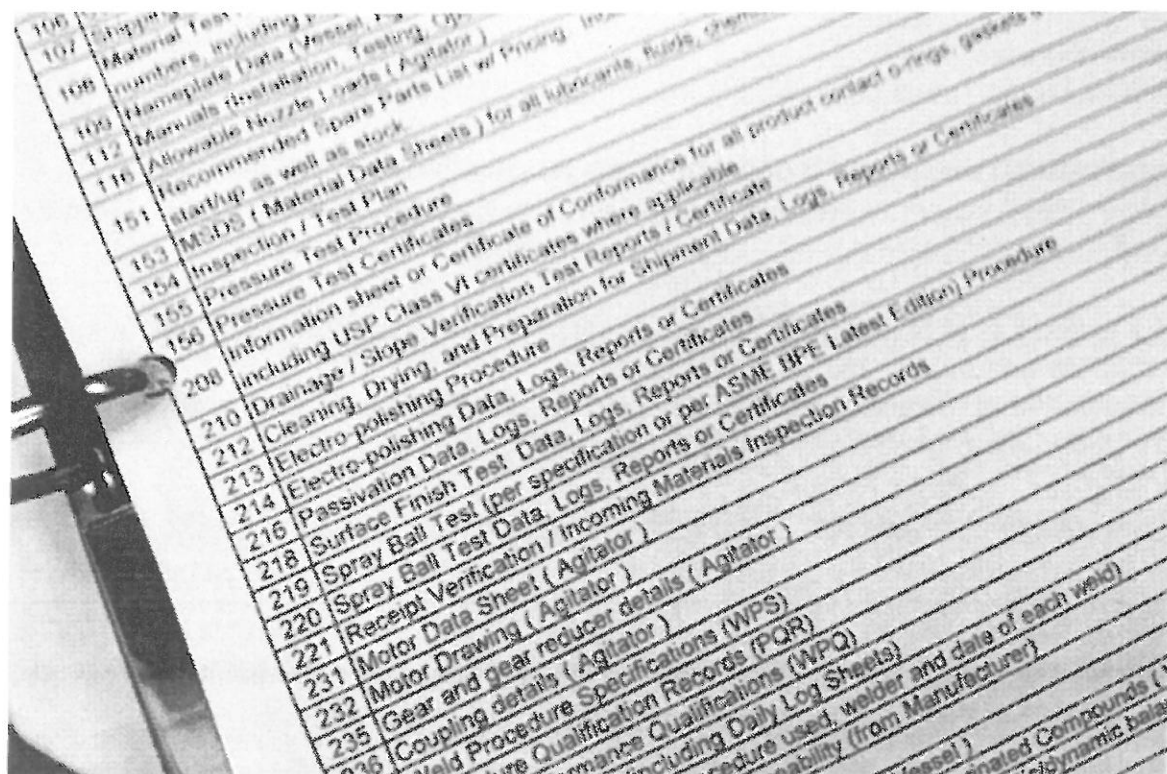 106
107 Shipping
108 Material Test
numbers, including
109 Nameplate Data ( Vessel,
112 Manuals (Installation, Testing,
116 Allowable Nozzle Loads ( Agitator )
151 Recommended Spare Parts List w/ Pricing
start/up as well as stock
153 MSDS ( Material Data Sheets ) for all lubricants, fluids,
154 Inspection / Test Plan
155 Pressure Test Procedure
156 Pressure Test Certificates
208 Information sheet or Certificate of Conformance for all product contact o-rings, gaskets
including USP Class VI certificates where applicable
210 Drainage / Slope Verification Test Reports / Certificate
212 Cleaning, Drying, and Preparation for Shipment Data, Logs, Reports or Certificates
213 Electro-polishing Procedure
214 Electro-polishing Data, Logs, Reports or Certificates
216 Passivation Data, Logs, Reports or Certificates
218 Surface Finish Test Data, Logs, Reports or Certificates
219 Spray Ball Test (per specification or per ASME BPE Latest Edition) Procedure
220 Spray Ball Test Data, Logs, Reports or Certificates
221 Receipt Verification / Incoming Materials Inspection Records
231 Motor Data Sheet ( Agitator )
232 Motor Drawing ( Agitator )
235 Gear and gear reducer details ( Agitator )
236 Coupling details ( Agitator )
Weld Procedure Specifications (WPS)
Qualification Records (PQR)
Qualifications (WPQ)
including Daily Log Sheets)
used, welder and date of each weld)
(from Manufacturer)
Compounds (